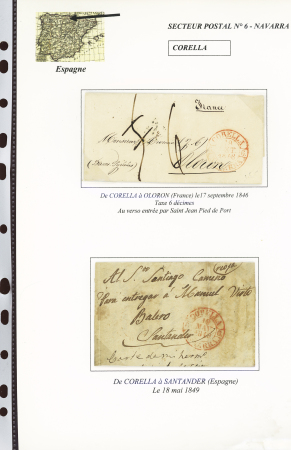 SECTEUR POSTAL N° 6 - NAVARRA
CORELLA
Espagne
France
Monsieur
Oloron
De CORELLA à OLORON (France) le17 septembre 1846
Taxe 6 décimes
Au verso entrée par Saint Jean Pied de Port
Al Sr. Santiago
Para entregar a Manuel
Balero
Santander
De CORELLA à SANTANDER (Espagne)
Le 18 mai 1849